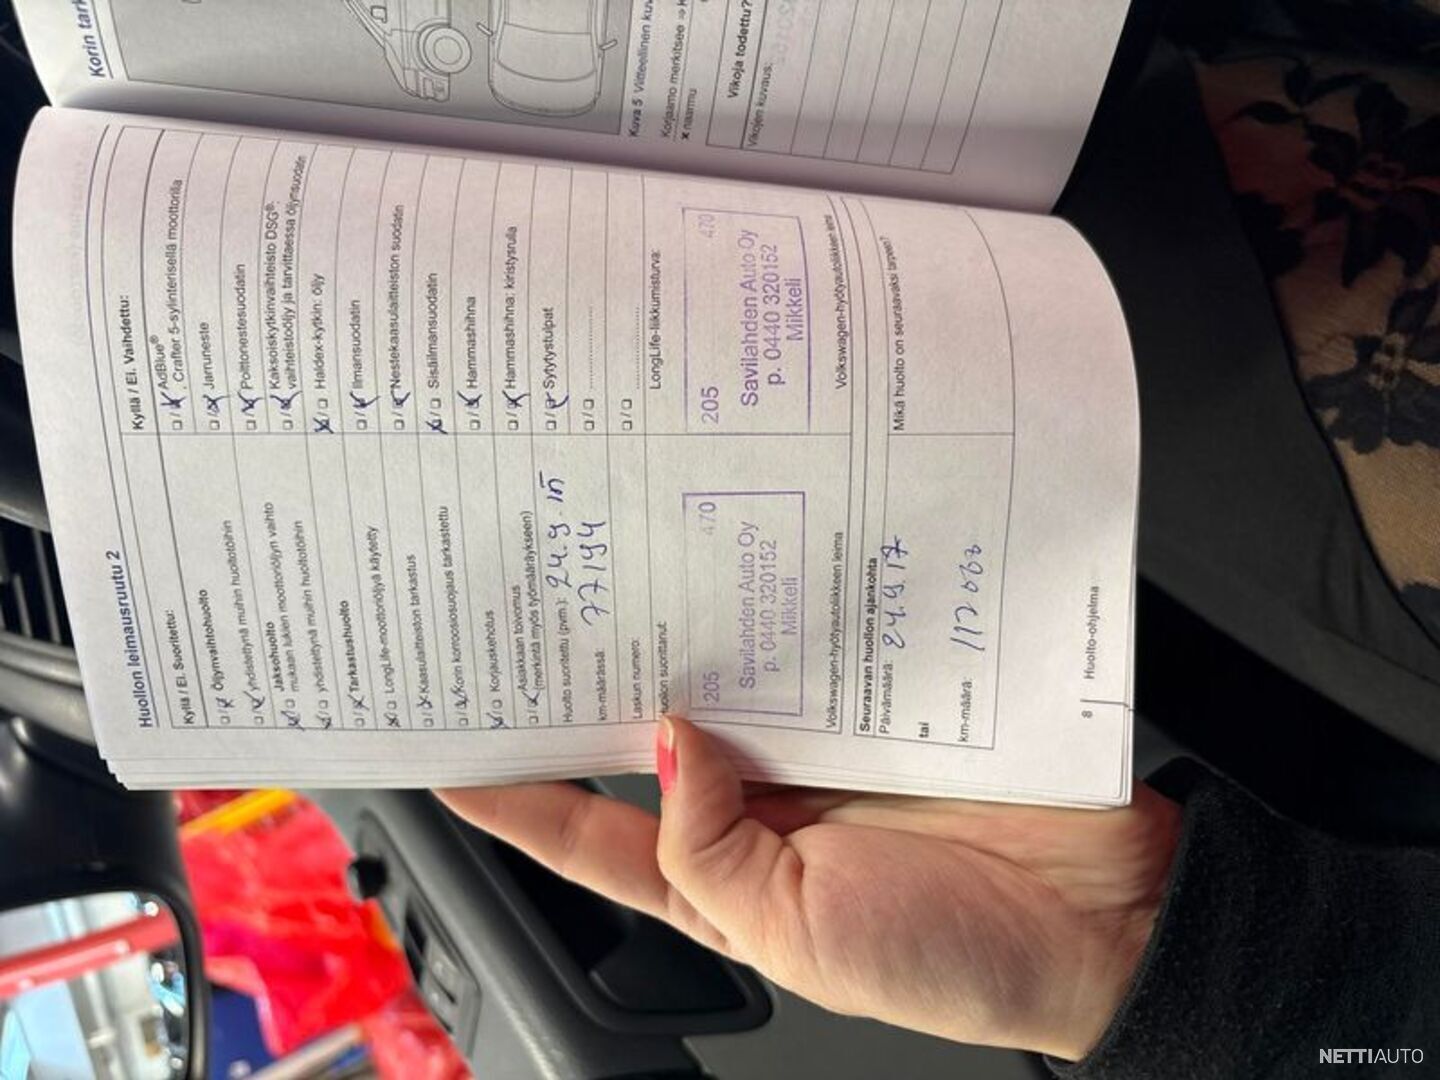 Huollon leimausruutu 2
Kyllä / Ei. Suoritettu:
Öljynvaihtohuolto
yhdistettynä muihin huoltotöihin
Jaksohuolto
mukaan lukien moottoriöljyn vaihto
yhdistettynä muihin huoltotöihin
Tarkastushuolto
LongLife-moottoriöljyä käytetty
Kaasulaitteiston tarkastus
Korin korroosiosuojaus tarkastettu
Korjauskehotus
Asiakkaan toivomus
(merkintä myös työmääräykseen)
Huolto suoritettu (pvm.): 24.9.15
km-määrässä: 77194
Laskun numero:
Huollon suorittanut:
205 470
Savilahden Auto Oy
p. 0440 320152
Mikkeli
Volkswagen-hyötyautoliikkeen leima
Kyllä / Ei. Vaihdettu:
AdBlue®
, Crafter 5-sylinterisellä moottorilla
Jarruneste
Polttonestesuodatin
Kaksoiskytkinvaihteisto DSG®:
vaihteistoöljy ja tarvittaessa öljynsuodatin
Haldex-kytkin: öljy
Ilmansuodatin
Nestekaasulaitteiston suodatin
Sisäilmansuodatin
Hammashihna
Hammashihna: kiristysrulla
Sytytystulpat
LongLife-liikkumisturva:
205 470
Savilahden Auto Oy
p. 0440 320152
Mikkeli
Volkswagen-hyötyautoliikkeen leima
Seuraavan huollon ajankohta
Päivämäärä: 24.9.17
tai
km-määrä:
Mikä huolto on seuraavaksi tarpeen?
8 Huolto-ohjelma
Korin tark
Kuva 5 Viitteellinen kuv
Korjaamo merkitsee ⇒
x naarmu
Vikoja todettu?
Vikojen kuvaus:
NETTIAUTO